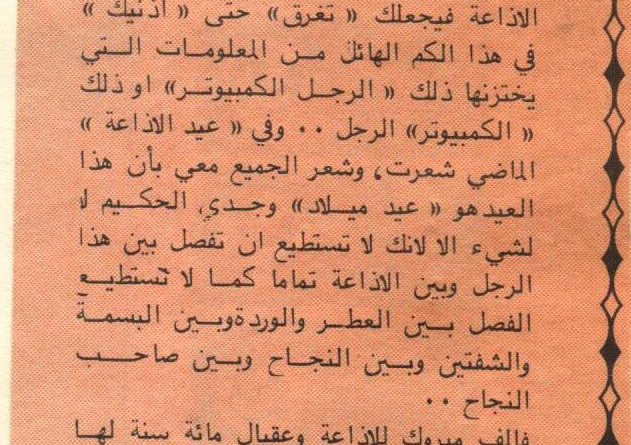 الاذاعة فيجعلك « تغرق» حتى « اذنيك »
في هذا الكم الهائل من المعلومات التي
يختزنها ذلك « الرجل الكمبيوتر» او ذلك
« الكمبيوتر» الرجل .. وفي « عيد الاذاعة »
الماضي شعرت، وشعر الجميع معي بأن هذا
العيدهو « عيد ميلاد» وجدي الحكيم لا
لشيء الا لانك لا تستطيع ان تفصل بين هذا
الرجل وبين الاذاعة تماما كما لا تستطيع
الفصل بين العطر والوردةوبين البسمة
والشفتين وبين النجاح وبين صاحب
النجاح ..
فالف مبروك للاذاعة وعقبال مائة سنة لها